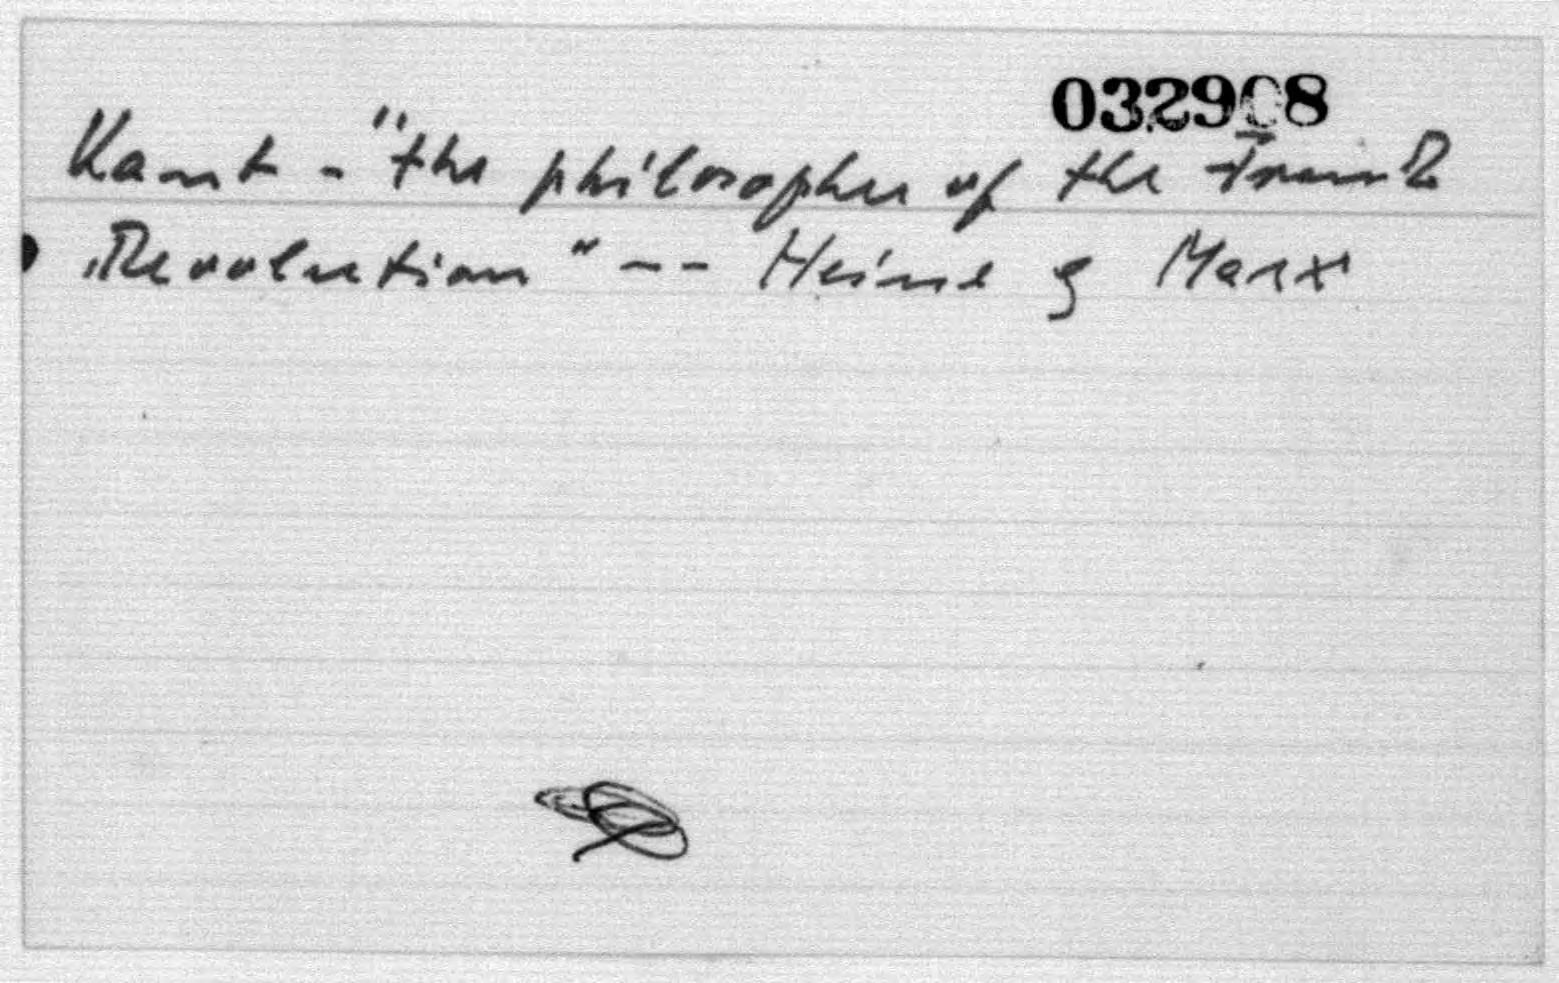 032908
Kant - "the philosopher of the French
Revolution" -- Heine & Marx